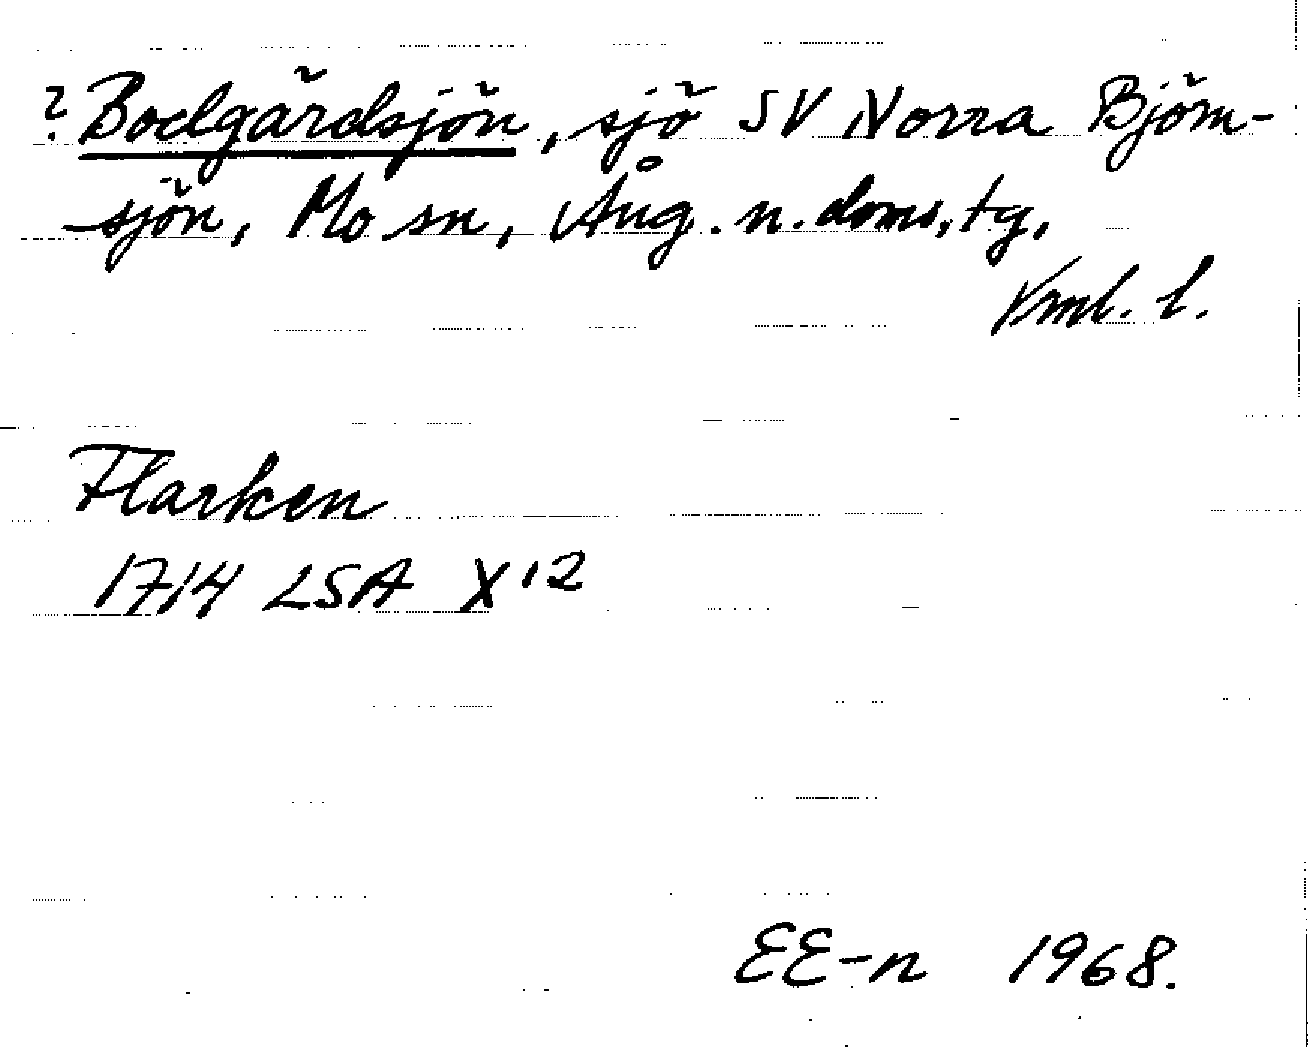 ? Bodgårdsjön, sjö SV Norra Björn-
-sjön, Mo sn, Ång. n. doms. tg,
Vrml. l.
Flarken
1714 LSA X 12
EE-n 1968.